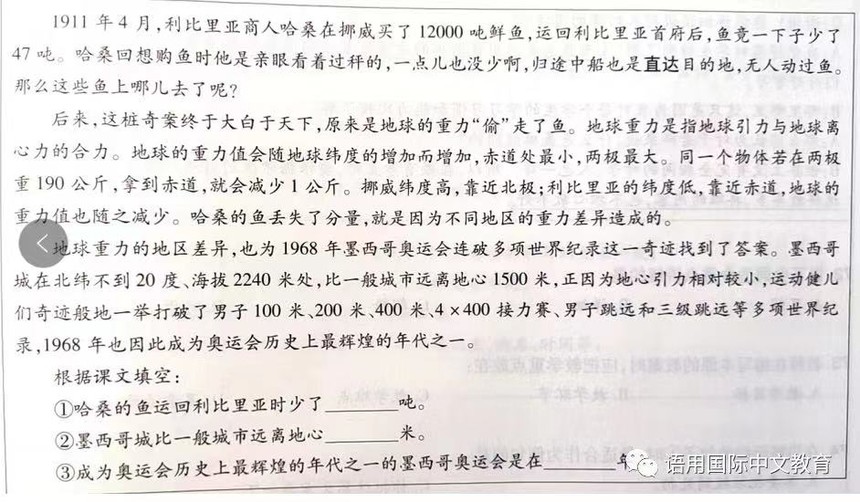 1911 年 4 月,利比里亚商人哈桑在挪威买了 12000 吨鲜鱼,运回利比里亚首府后,鱼竟一下子少了
47 吨。哈桑回想购鱼时他是亲眼看着过秤的,一点儿也没少啊,归途中船也是直达目的地,无人动过鱼。
那么这些鱼上哪儿去了呢?
后来,这桩奇案终于大白于天下,原来是地球的重力“偷”走了鱼。地球重力是指地球引力与地球离
心力的合力。地球的重力值会随地球纬度的增加而增加,赤道处最小,两极最大。同一个物体若在两极
重 190 公斤,拿到赤道,就会减少 1 公斤。挪威纬度高,靠近北极;利比里亚的纬度低,靠近赤道,地球的
重力值也随之减少。哈桑的鱼丢失了分量,就是因为不同地区的重力差异造成的。
地球重力的地区差异,也为 1968 年墨西哥奥运会连破多项世界纪录这一奇迹找到了答案。墨西哥
城在北纬不到 20 度、海拔 2240 米处,比一般城市远离地心 1500 米,正因为地心引力相对较小,运动健儿
们奇迹般地一举打破了男子 100 米、200 米、400 米、4×400 接力赛、男子跳远和三级跳远等多项世界纪
录,1968 年也因此成为奥运会历史上最辉煌的年代之一。
根据课文填空:
①哈桑的鱼运回利比里亚时少了______吨。
②墨西哥城比一般城市远离地心______米。
③成为奥运会历史上最辉煌的年代之一的墨西哥奥运会是在______年
语用国际中文教育